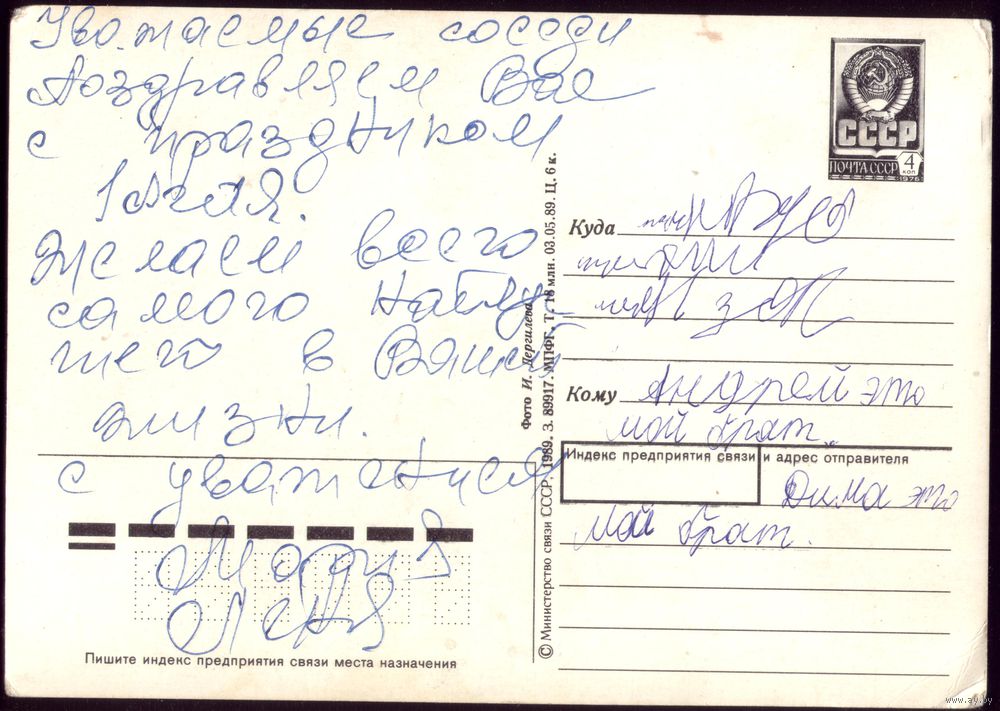 Уважаемые соседи
Поздравляем Вас
с праздником
1 Мая.
Желаем всего
самого наилу-
шего в Вашей
жизни.
с уважением
Мария
Лёня
Пишите индекс предприятия связи места назначения
Фото И. Дергилева
© Министерство связи СССР, 1989. З. 89917. МПФГ. Т. 18 млн. 03.05.89. Ц. 6 к.
СССР
ПОЧТА СССР
4
КОП
1976
Куда
Кому Андрей это
мой брат.
Индекс предприятия связи и адрес отправителя
Дима это
мой брат.
www.ay.by